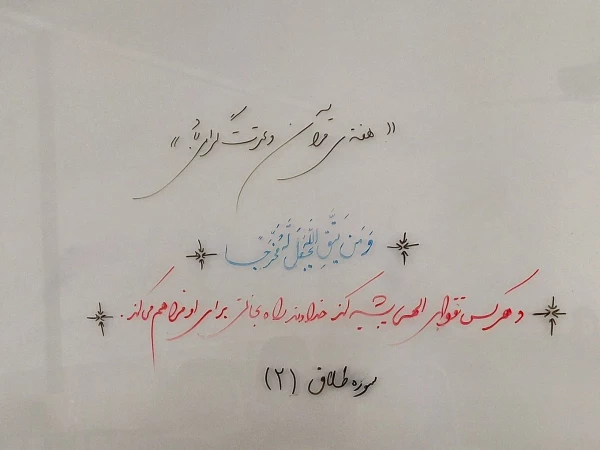 « هفته ی قرآن و عترت گرامی باد »
وَمَن يَتَّقِ اللَّهَ يَجْعَل لَّهُ مَخْرَجًا
و هر کس تقوای الهی پیشه کند خداوند راه نجاتی برای او فراهم می کند.
سوره طلاق (۲)